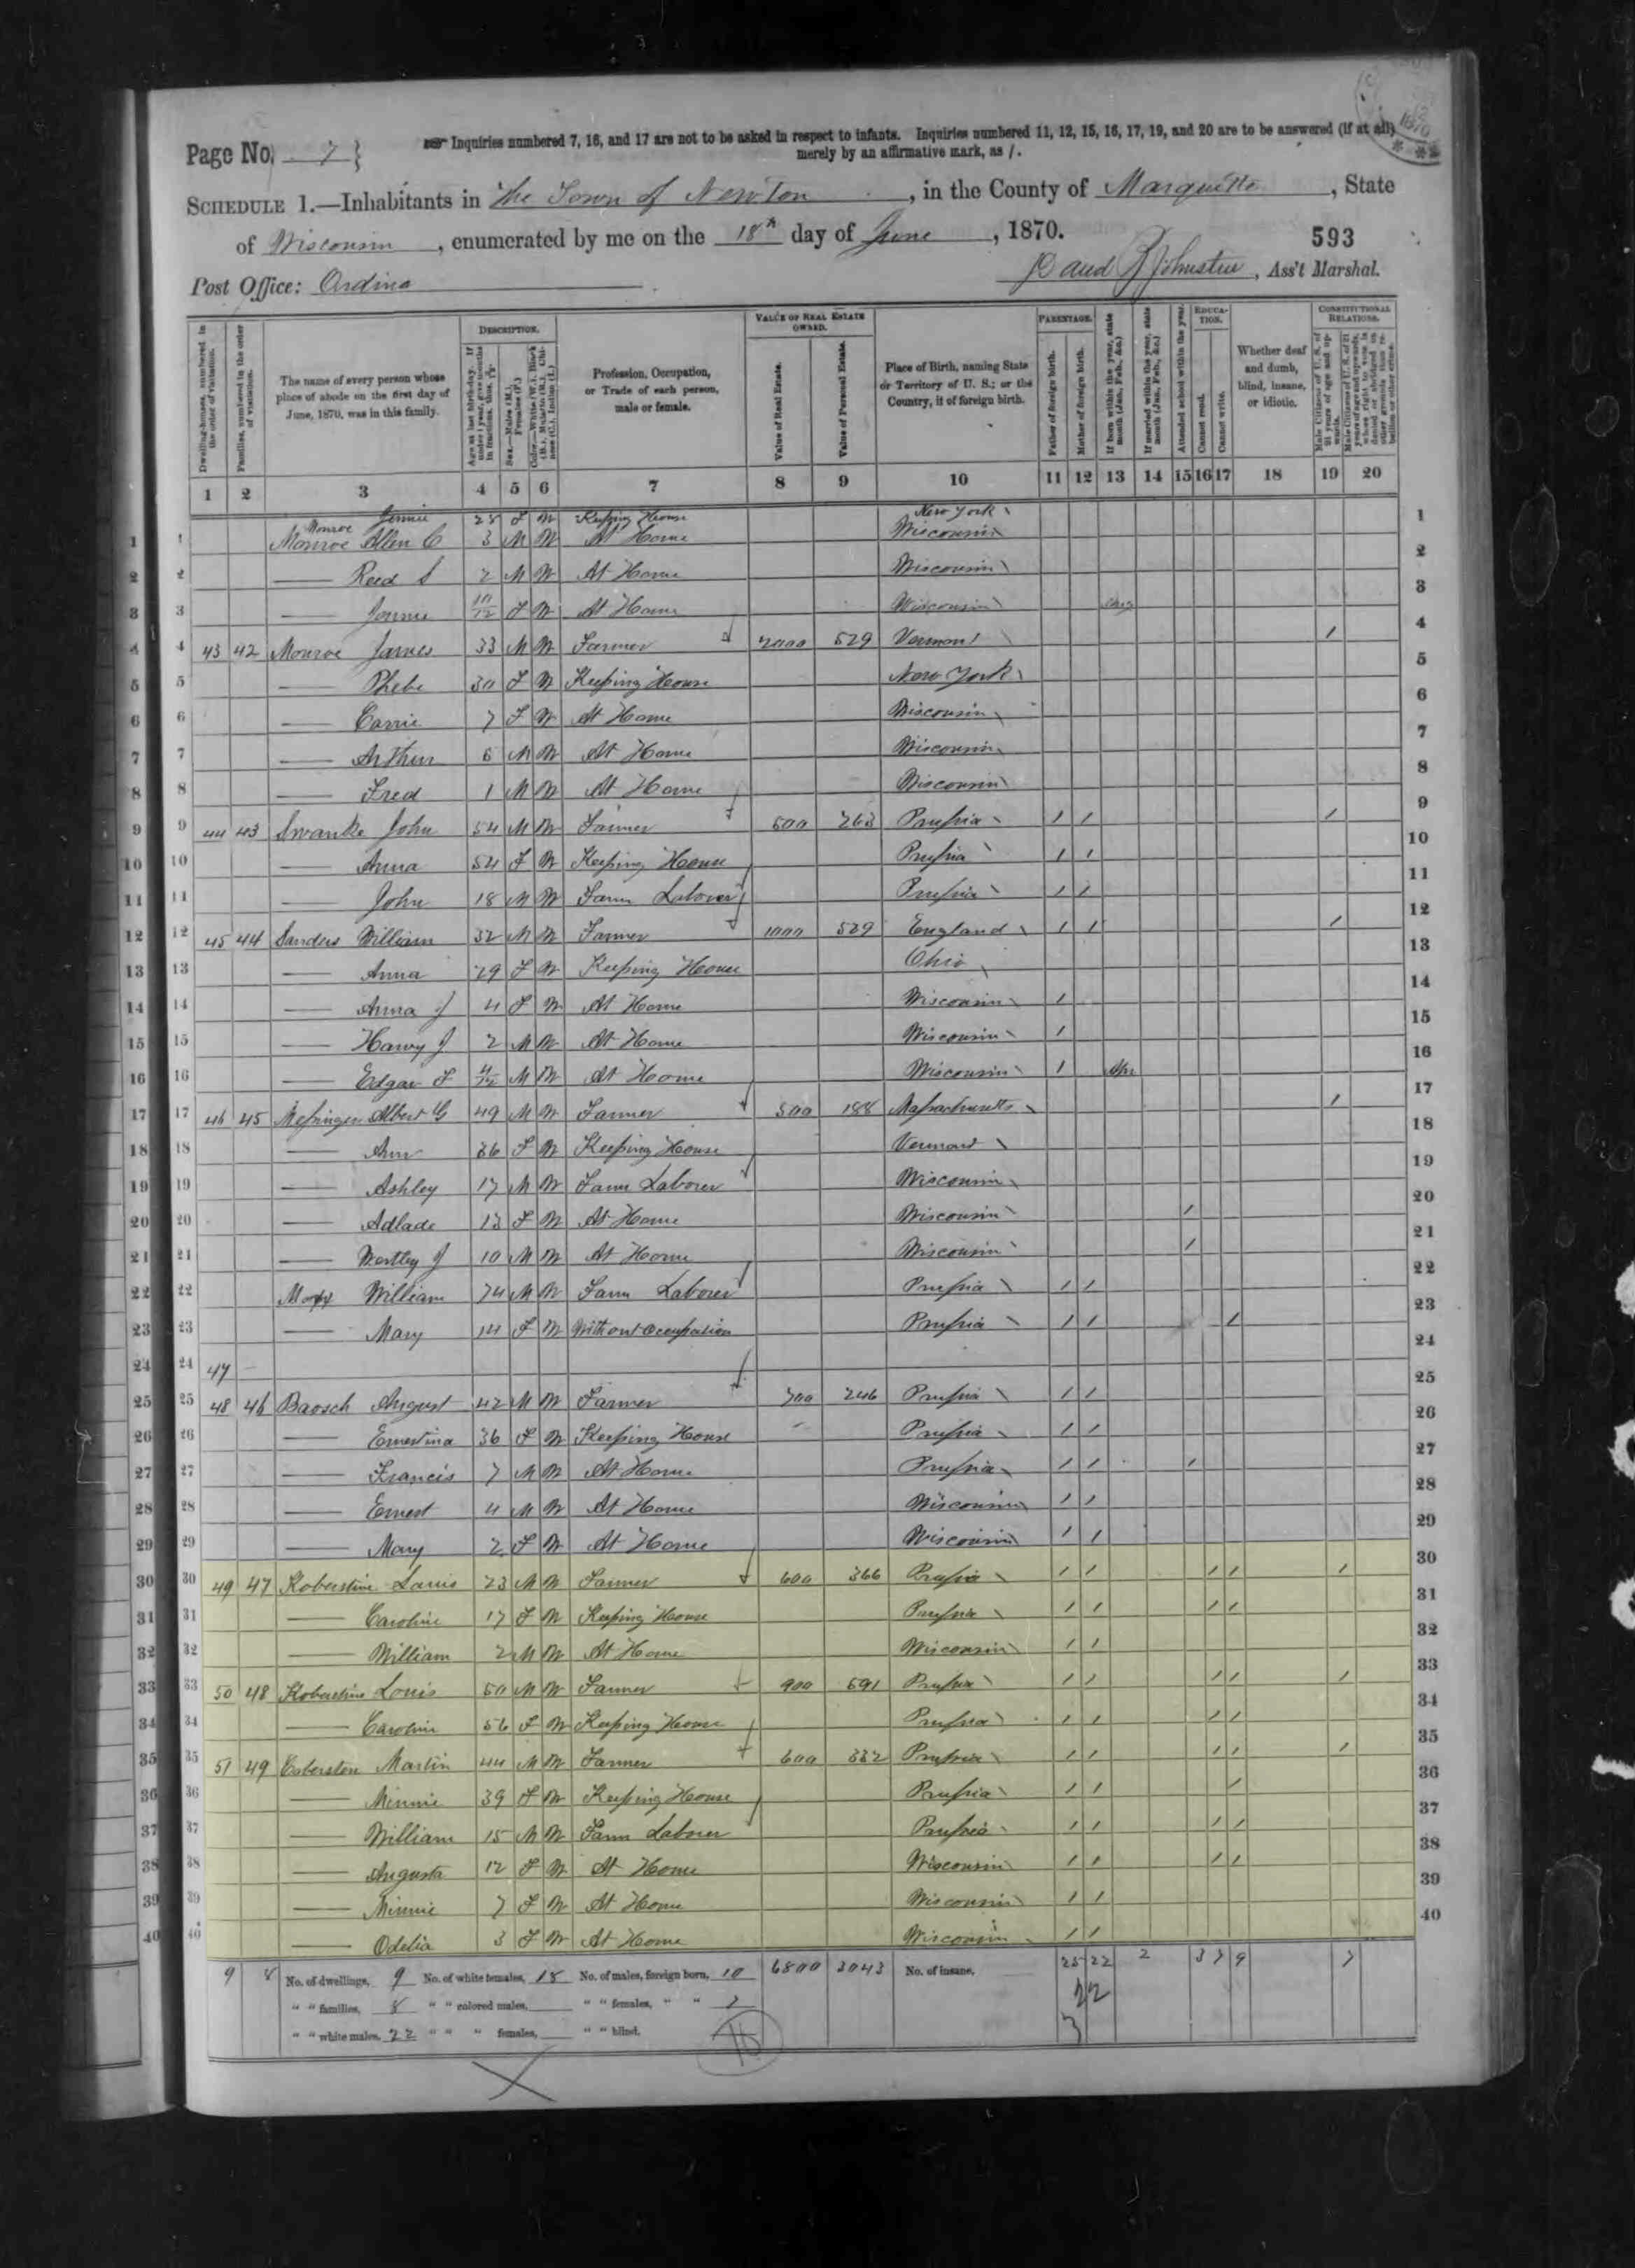 Page No. 7 } ☞ Inquiries numbered 7, 16, and 17 are not to be asked in respect to infants. Inquiries numbered 11, 12, 15, 16, 17, 19, and 20 are to be answered (if at all)
merely by an affirmative mark, as /.
SCHEDULE 1.—Inhabitants in The Town of Newton, in the County of Marquette, State
of Wisconsin, enumerated by me on the 18th day of June, 1870.
593
Post Office: Ordino
Johnston, Ass't Marshal.
Dwelling-houses, numbered in the order of visitation.
Families, numbered in the order of visitation.
The name of every person whose place of abode on the first day of June, 1870, was in this family.
DESCRIPTION.
Profession, Occupation, or Trade of each person, male or female.
VALUE OF REAL ESTATE OWNED.
Value of Real Estate.
Value of Personal Estate.
Place of Birth, naming State or Territory of U. S.; or the Country, if of foreign birth.
PARENTAGE.
Father of foreign birth.
Mother of foreign birth.
If born within the year, state month (Jan., Feb., &c.)
If married within the year, state month (Jan., Feb., &c.)
Attended school within the year.
EDUCATION.
Cannot read.
Cannot write.
Whether deaf and dumb, blind, insane, or idiotic.
CONSTITUTIONAL RELATIONS.
1 2 3 4 5 6 7 8 9 10 11 12 13 14 15 16 17 18 19 20
Monroe Jennie 25 F W Keeping House New York
1 1 Monroe Allen C 3 M W At Home Wisconsin 1
2 2 —— Reed S 2 M W At Home Wisconsin 2
3 3 —— Jennie 10/12 F W At Home Wisconsin Aug 3
4 4 43 42 Monroe James 33 M W Farmer 2000 529 Vermont / 4
5 5 —— Phebe 30 F W Keeping House New York 5
6 6 —— Carrie 7 F W At Home Wisconsin 6
7 7 —— Arthur 6 M W At Home Wisconsin 7
8 8 —— Fred 1 M W At Home Wisconsin 8
9 9 44 43 Swanke John 54 M W Farmer 500 263 Prussia / / / 9
10 10 —— Anna 54 F W Keeping House Prussia / / 10
11 11 —— John 18 M W Farm Laborer Prussia / / 11
12 12 45 44 Sanders William 32 M W Farmer 1000 529 England / / / 12
13 13 —— Anna 29 F W Keeping House Ohio 13
14 14 —— Anna J 4 F W At Home Wisconsin / 14
15 15 —— Harvy J 2 M W At Home Wisconsin / 15
16 16 —— Edgar F M W At Home Wisconsin / Apr 16
17 17 46 45 Messinger Albert G 49 M W Farmer 500 188 Massachusetts / 17
18 18 —— Ann 36 F W Keeping House Vermont 18
19 19 —— Ashley 17 M W Farm Laborer Wisconsin 19
20 20 —— Adlade 13 F W At Home Wisconsin / 20
21 21 —— Westley J 10 M W At Home Wisconsin / 21
22 22 William 74 M W Farm Laborer Prussia / / 22
23 23 —— Mary 14 F W Without Occupation Prussia / / / 23
24 24 47 24
25 25 48 46 Baosch August 42 M W Farmer 700 246 Prussia / / 25
26 26 —— Ernestina 36 F W Keeping House Prussia / / 26
27 27 —— Francis 7 M W At Home Prussia / / / 27
28 28 —— Ernest 4 M W At Home Wisconsin / / 28
29 29 —— Mary 2 F W At Home Wisconsin / / 29
30 30 49 47 Koberstine Louis 23 M W Farmer 600 366 Prussia / / / / / 30
31 31 —— Caroline 17 F W Keeping House Prussia / / / / 31
32 32 —— William 2 M W At Home Wisconsin / / 32
33 33 50 48 Koberstine Louis 50 M W Farmer 900 591 Prussia / / / / / 33
34 34 —— Caroline 56 F W Keeping House Prussia / / / / 34
35 35 51 49 Coberston Martin 44 M W Farmer 600 332 Prussia / / / / / 35
36 36 —— Minnie 39 F W Keeping House Prussia / / / 36
37 37 —— William 15 M W Farm Laborer Prussia / / / / 37
38 38 —— Augusta 12 F W At Home Wisconsin / / / / 38
39 39 —— Minnie 7 F W At Home Wisconsin / / 39
40 40 —— Odelia 3 F W At Home Wisconsin / / 40
9 8 No. of dwellings, 9 No. of white females, 18 No. of males, foreign born, 10 6800 3043 No. of insane, 25 22 2 3 7 9 7
" " families, 8 " " colored males, " " females, " " 7
" " white males, 22 " " " females, " " blind.
22
3